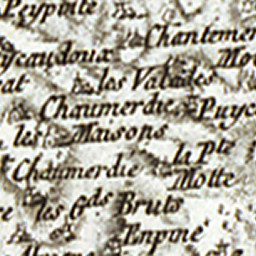 Peypinte
Chantemer
ycaudoux
las Valades
Chaumerdie
Puyc
les Maisons
la Pte
Chaumerdie
Motte
les Gds Bruts
l'Enpine